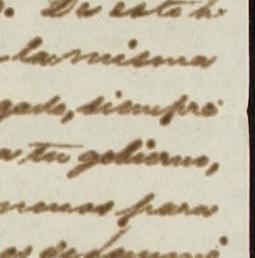 De esto h
la misma
gado, siempre
a tu gobierno,
menos para